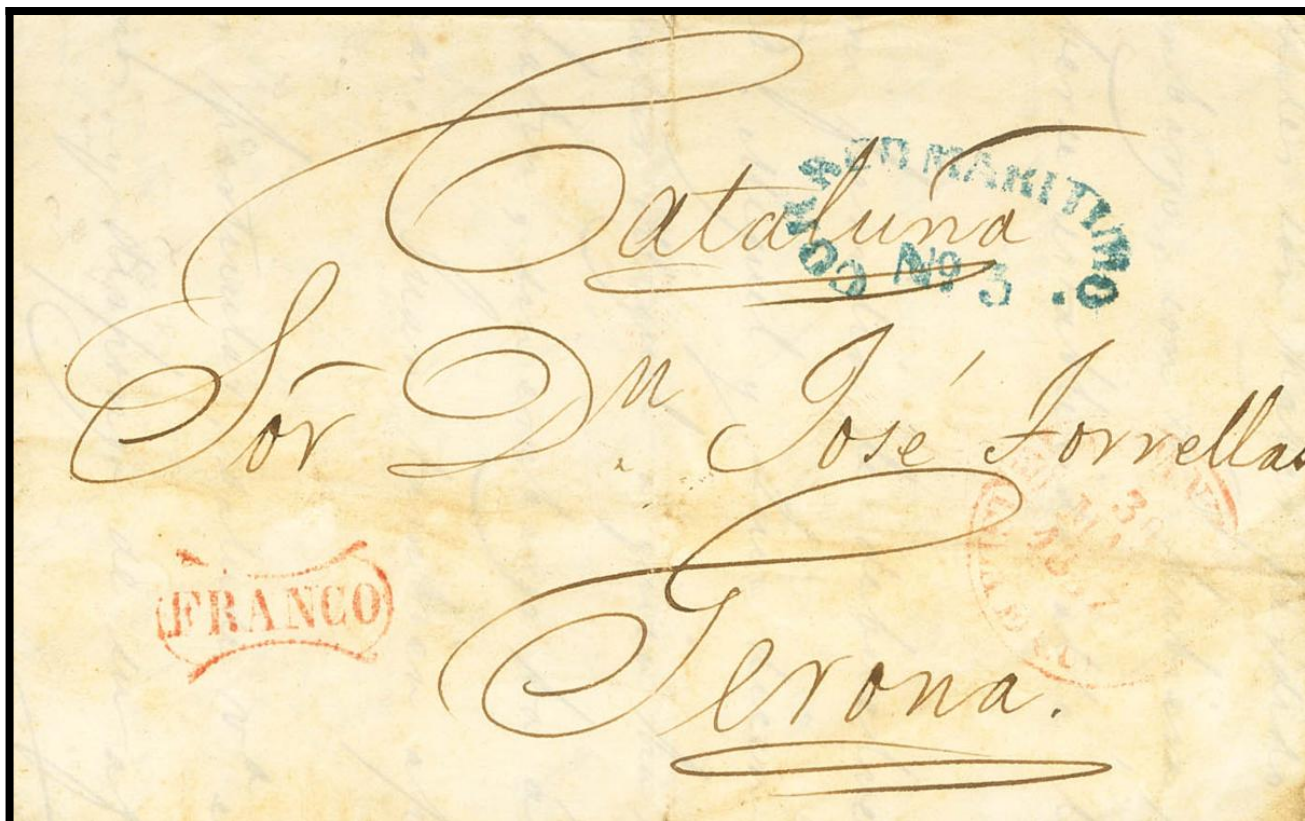 Cataluña
CORREO MARITIMO
Nº 3.
Sor Dn. José Torrellas
30
FRANCO
Gerona.